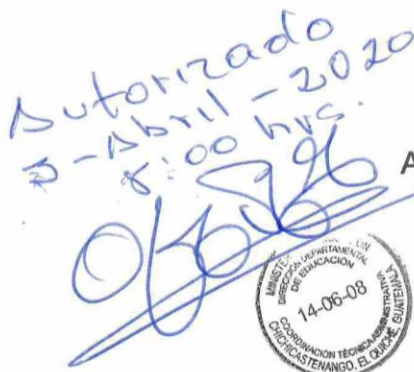 Autorizado
3-Abril-2020
8:00 hrs.
A
DIRECCIÓN DEPARTAMENTAL
DE EDUCACIÓN
14-06-08
COORDINACIÓN TÉCNICA ADMINISTRATIVA
CHICHICASTENANGO, EL QUICHÉ, GUATEMALA